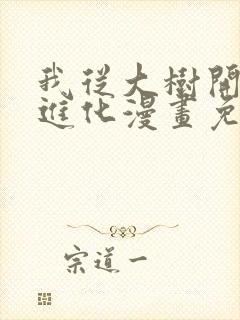 我從大樹開
進化漫畫免
宗道一